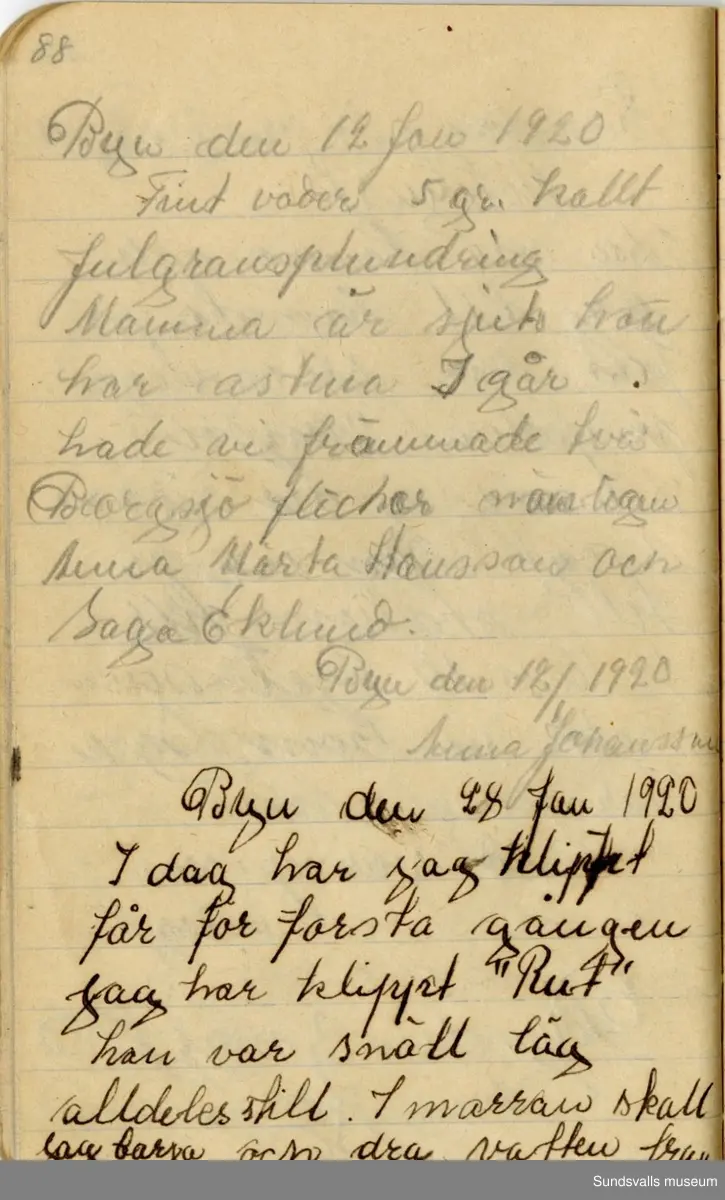 88
Byn den 12 Jan 1920
Fint väder 5 gr. kallt
Julgransplundring
Mamma är sjuk hon
har astma I går
hade vi främmade två
Borgsjö flickor nämligen
Anna Märta Hansson och
Saga Eklund.
Byn den 12/1 1920
Anna Johansson
Byn den 28 Jan 1920
I dag har jag klippt
får för forsta gången
jag har klippt "Rut"
han var snäll låg
alldeles still. I marran skall
jag barva och dra vatten från
Sundsvalls museum